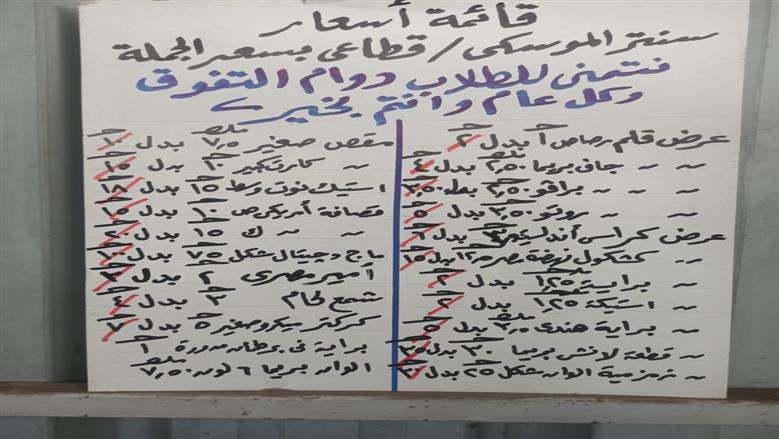 قائمة أسعار
سنتر الموسكى / قطاعى بسعر الجملة
نتمنى للطلاب دوام التفوق
وكل عام وانتم بخير
عرض قلم رصاص ١ بدل ٢
" " جاف بريما ٢,٥٠ بدل ٤
" " " برافو ٢,٥٠ بدل ٣,٥٠
" " روتو ٣,٥٠ بدل ٥
عرض كراسى أندلسيه بدل
" كشكول نهضة مصر ١٢ بدل ١٥
" براية ١,٢٥ بدل ٢
" استيكة ١,٢٥ بدل ٢
" براية هندى بدل ٥
" قطعة لانش بريما ٣٠ بدل ٣٥
" زمزمية الوان شكل ٢٥ بدل ٣٠
مقص صغير ٧,٥ بدل ١٠
" كارت كبير ١٠ بدل ١٥
استيك نوت وسط ١٥ بدل ١٨
قصافة أمريكى ص ١٠ بدل ١٥
" " ك ١٥ بدل ٢٠
ماج ديجيتال شكل ٧٥ بدل
أمير مصرى ٢ بدل ٣
شمع لحام ٣ بدل ٤
كركتر ميكرو صغير ٥ بدل ٧
براية فى برطمان مدورة ١
الوان بريما ٦ لون ٧,٥٠